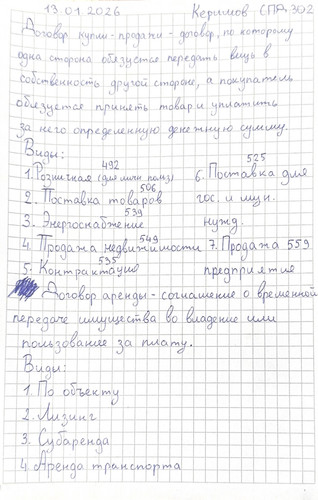 13.01.2026 Керимов СПД-302
Договор купли-продажи - договор, по которому
одна сторона обязуется передать вещь в
собственность другой стороне, а покупатель
обязуется принять товар и уплатить
за него определенную денежную сумму.
Виды:
492 525
1. Розничная (для личн польз) 6. Поставка для
506
2. Поставка товаров гос. и мун.
539
3. Энергоснабжение нужд.
549
4. Продажа недвижимости 7. Продажа 559
535
5. Контрактация предприятие
Договор аренды - соглашение о временной
передаче имущества во владение или
пользование за плату.
Виды:
1. По объекту
2. Лизинг
3. Субаренда
4. Аренда транспорта